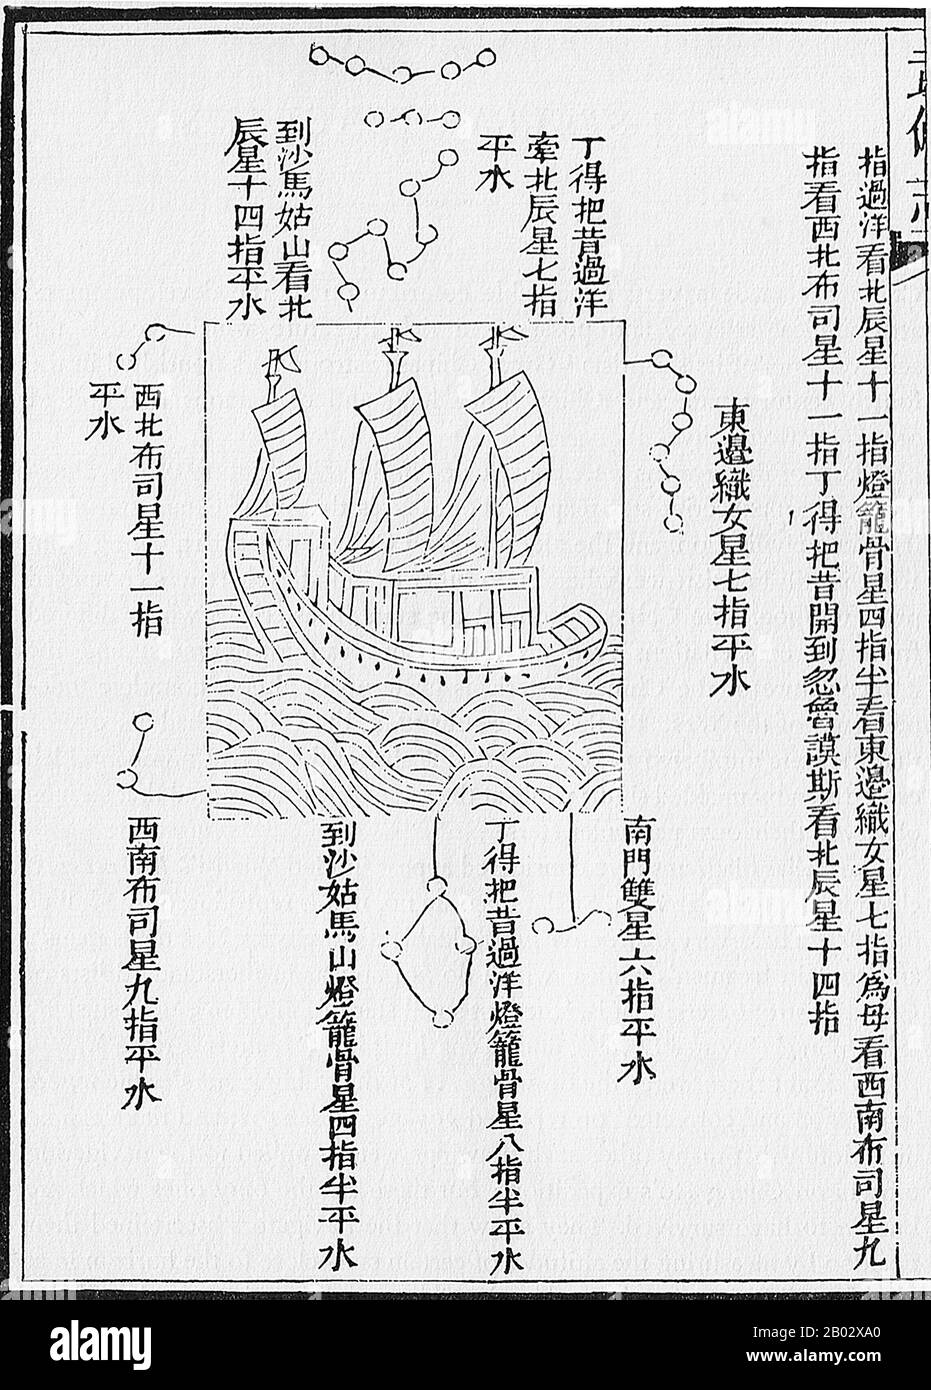 武備志
指過洋看北辰星十一指燈籠骨星四指半看東邊織女星七指為母看西南布司星九
指看西北布司星十一指丁得把昔開到忽魯謨斯看北辰星十四指
丁得把昔過洋
牽北辰星七指
平水
到沙馬姑山看北
辰星十四指平水
東邊織女星七指平水
西北布司星十一指
平水
南門雙星六指平水
丁得把昔過洋燈籠骨星八指半平水
到沙姑馬山燈籠骨星四指半平水
西南布司星九指平水
alamy
Image ID: 2B02XA0
www.alamy.com